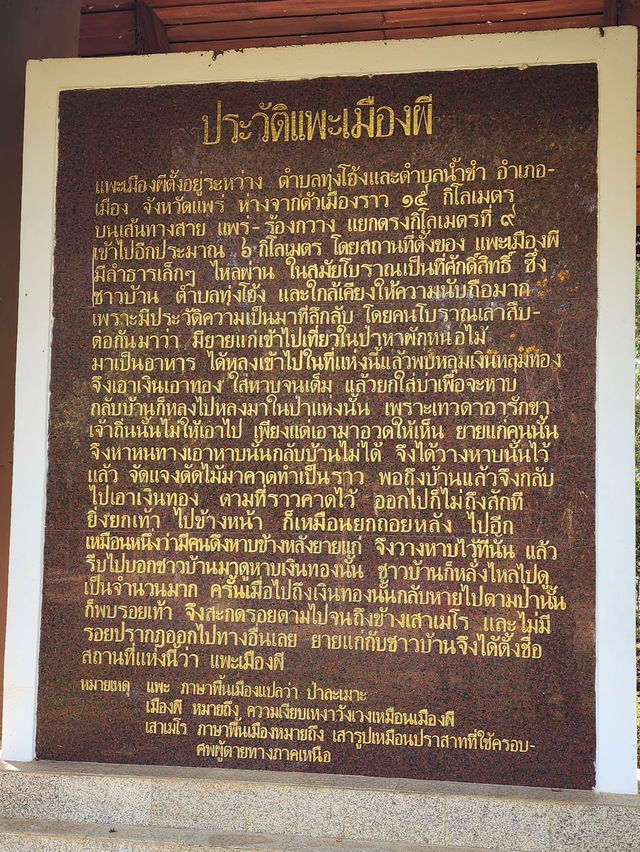 ประวัติแพะเมืองผี
แพะเมืองผีตั้งอยู่ระหว่าง ตำบลทุ่งโฮ้งและตำบลน้ำชำ อำเภอ-
เมือง จังหวัดแพร่ ห่างจากตัวเมืองราว ๑๕ กิโลเมตร
บนเส้นทางสาย แพร่-ร้องกวาง แยกตรงกิโลเมตรที่ ๙
เข้าไปอีกประมาณ ๖ กิโลเมตร โดยสถานที่ตั้งของ แพะเมืองผี
มีลำธารเล็กๆ ไหลผ่าน ในสมัยโบราณเป็นที่ศักดิ์สิทธิ์ ซึ่ง
ชาวบ้าน ตำบลทุ่งโฮ้ง และใกล้เคียงให้ความนับถือมาก
เพราะมีประวัติความเป็นมาที่ลึกลับ โดยคนโบราณเล่าสืบ-
ต่อกันมาว่า มียายแก่เข้าไปเที่ยวในป่าหาผักหน่อไม้
มาเป็นอาหาร ได้หลงเข้าไปในที่แห่งนี้แล้วพบหลุมเงินหลุมทอง
จึงเอาเงินเอาทอง ใส่หาบจนเต็ม แล้วยกใส่บ่าเพื่อจะหาบ
กลับบ้านก็หลงไปหลงมาในป่าแห่งนั้น เพราะเทวดาอารักขา
เจ้าถิ่นนั้นไม่ให้เอาไป เพียงแต่เอามาอวดให้เห็น ยายแก่คนนั้น
จึงหาหนทางเอาหาบนั้นกลับบ้านไม่ได้ จึงได้วางหาบนั้นไว้
แล้ว จัดแจงตัดไม้มาคาดทำเป็นราว พอถึงบ้านแล้วจึงกลับ
ไปเอาเงินทอง ตามที่ราวคาดไว้ ออกไปก็ไม่ถึงสักที
ยิ่งยกเท้า ไปข้างหน้า ก็เหมือนยกถอยหลัง ไปอีก
เหมือนหนึ่งว่ามีคนดึงหาบข้างหลังยายแก่ จึงวางหาบไว้ที่นั้น แล้ว
รีบไปบอกชาวบ้านมาดูหาบเงินทองนั้น ชาวบ้านก็หลั่งไหลไปดู
เป็นจำนวนมาก ครั้นเมื่อไปถึงเงินทองนั้นกลับหายไปตามป่านั้น
ก็พบรอยเท้า จึงสะกดรอยตามไปจนถึงข้างเสาเมโร และไม่มี
รอยปรากฏออกไปทางอื่นเลย ยายแก่กับชาวบ้านจึงได้ตั้งชื่อ
สถานที่แห่งนี้ว่า แพะเมืองผี
หมายเหตุ แพะ ภาษาพื้นเมืองแปลว่า ป่าละเมาะ
เมืองผี หมายถึง ความเงียบเหงาวังเวงเหมือนเมืองผี
เสาเมโร ภาษาพื้นเมืองหมายถึง เสารูปเหมือนปราสาทที่ใช้ครอบ-
ศพผู้ตายทางภาคเหนือ